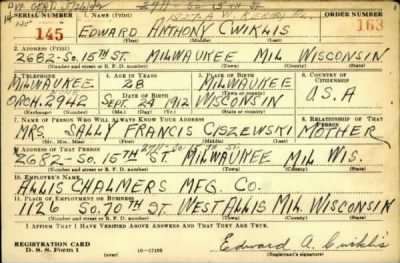 SERIAL NUMBER 1. NAME (Print) ORDER NUMBER
145 EDWARD ANTHONY CWIKLIS 163
(First) (Middle) (Last)
2. ADDRESS (Print)
2682-SO. 15TH ST. MILWAUKEE MIL WISCONSIN
(Number and street or R. F. D. number) (Town) (County) (State)
3. TELEPHONE 4. AGE IN YEARS 5. PLACE OF BIRTH 6. COUNTRY OF CITIZENSHIP
MILWAUKEE 28 MILWAUKEE
DATE OF BIRTH (Town or county)
ORCH. 2942 SEPT. 24 1912 WISCONSIN U.S.A
(Exchange) (Number) (Mo.) (Day) (Yr.) (State or country)
7. NAME OF PERSON WHO WILL ALWAYS KNOW YOUR ADDRESS 8. RELATIONSHIP OF THAT PERSON
MRS. SALLY FRANCIS CISZEWSKI MOTHER
(Mr., Mrs., Miss) (First) (Middle) (Last)
9. ADDRESS OF THAT PERSON
2682-SO. 15TH ST. MILWAUKEE MIL WIS.
(Number and street or R. F. D. number) (Town) (County) (State)
10. EMPLOYER'S NAME
ALLIS CHALMERS MFG. CO.
11. PLACE OF EMPLOYMENT OR BUSINESS
1126 SO. 70TH ST WEST ALLIS MIL WISCONSIN
(Number and street or R. F. D. number) (Town) (County) (State)
I AFFIRM THAT I HAVE VERIFIED ABOVE ANSWERS AND THAT THEY ARE TRUE.
REGISTRATION CARD
D. S. S. Form 1 16-17105 Edward A. Cwiklis
(Registrant's signature)